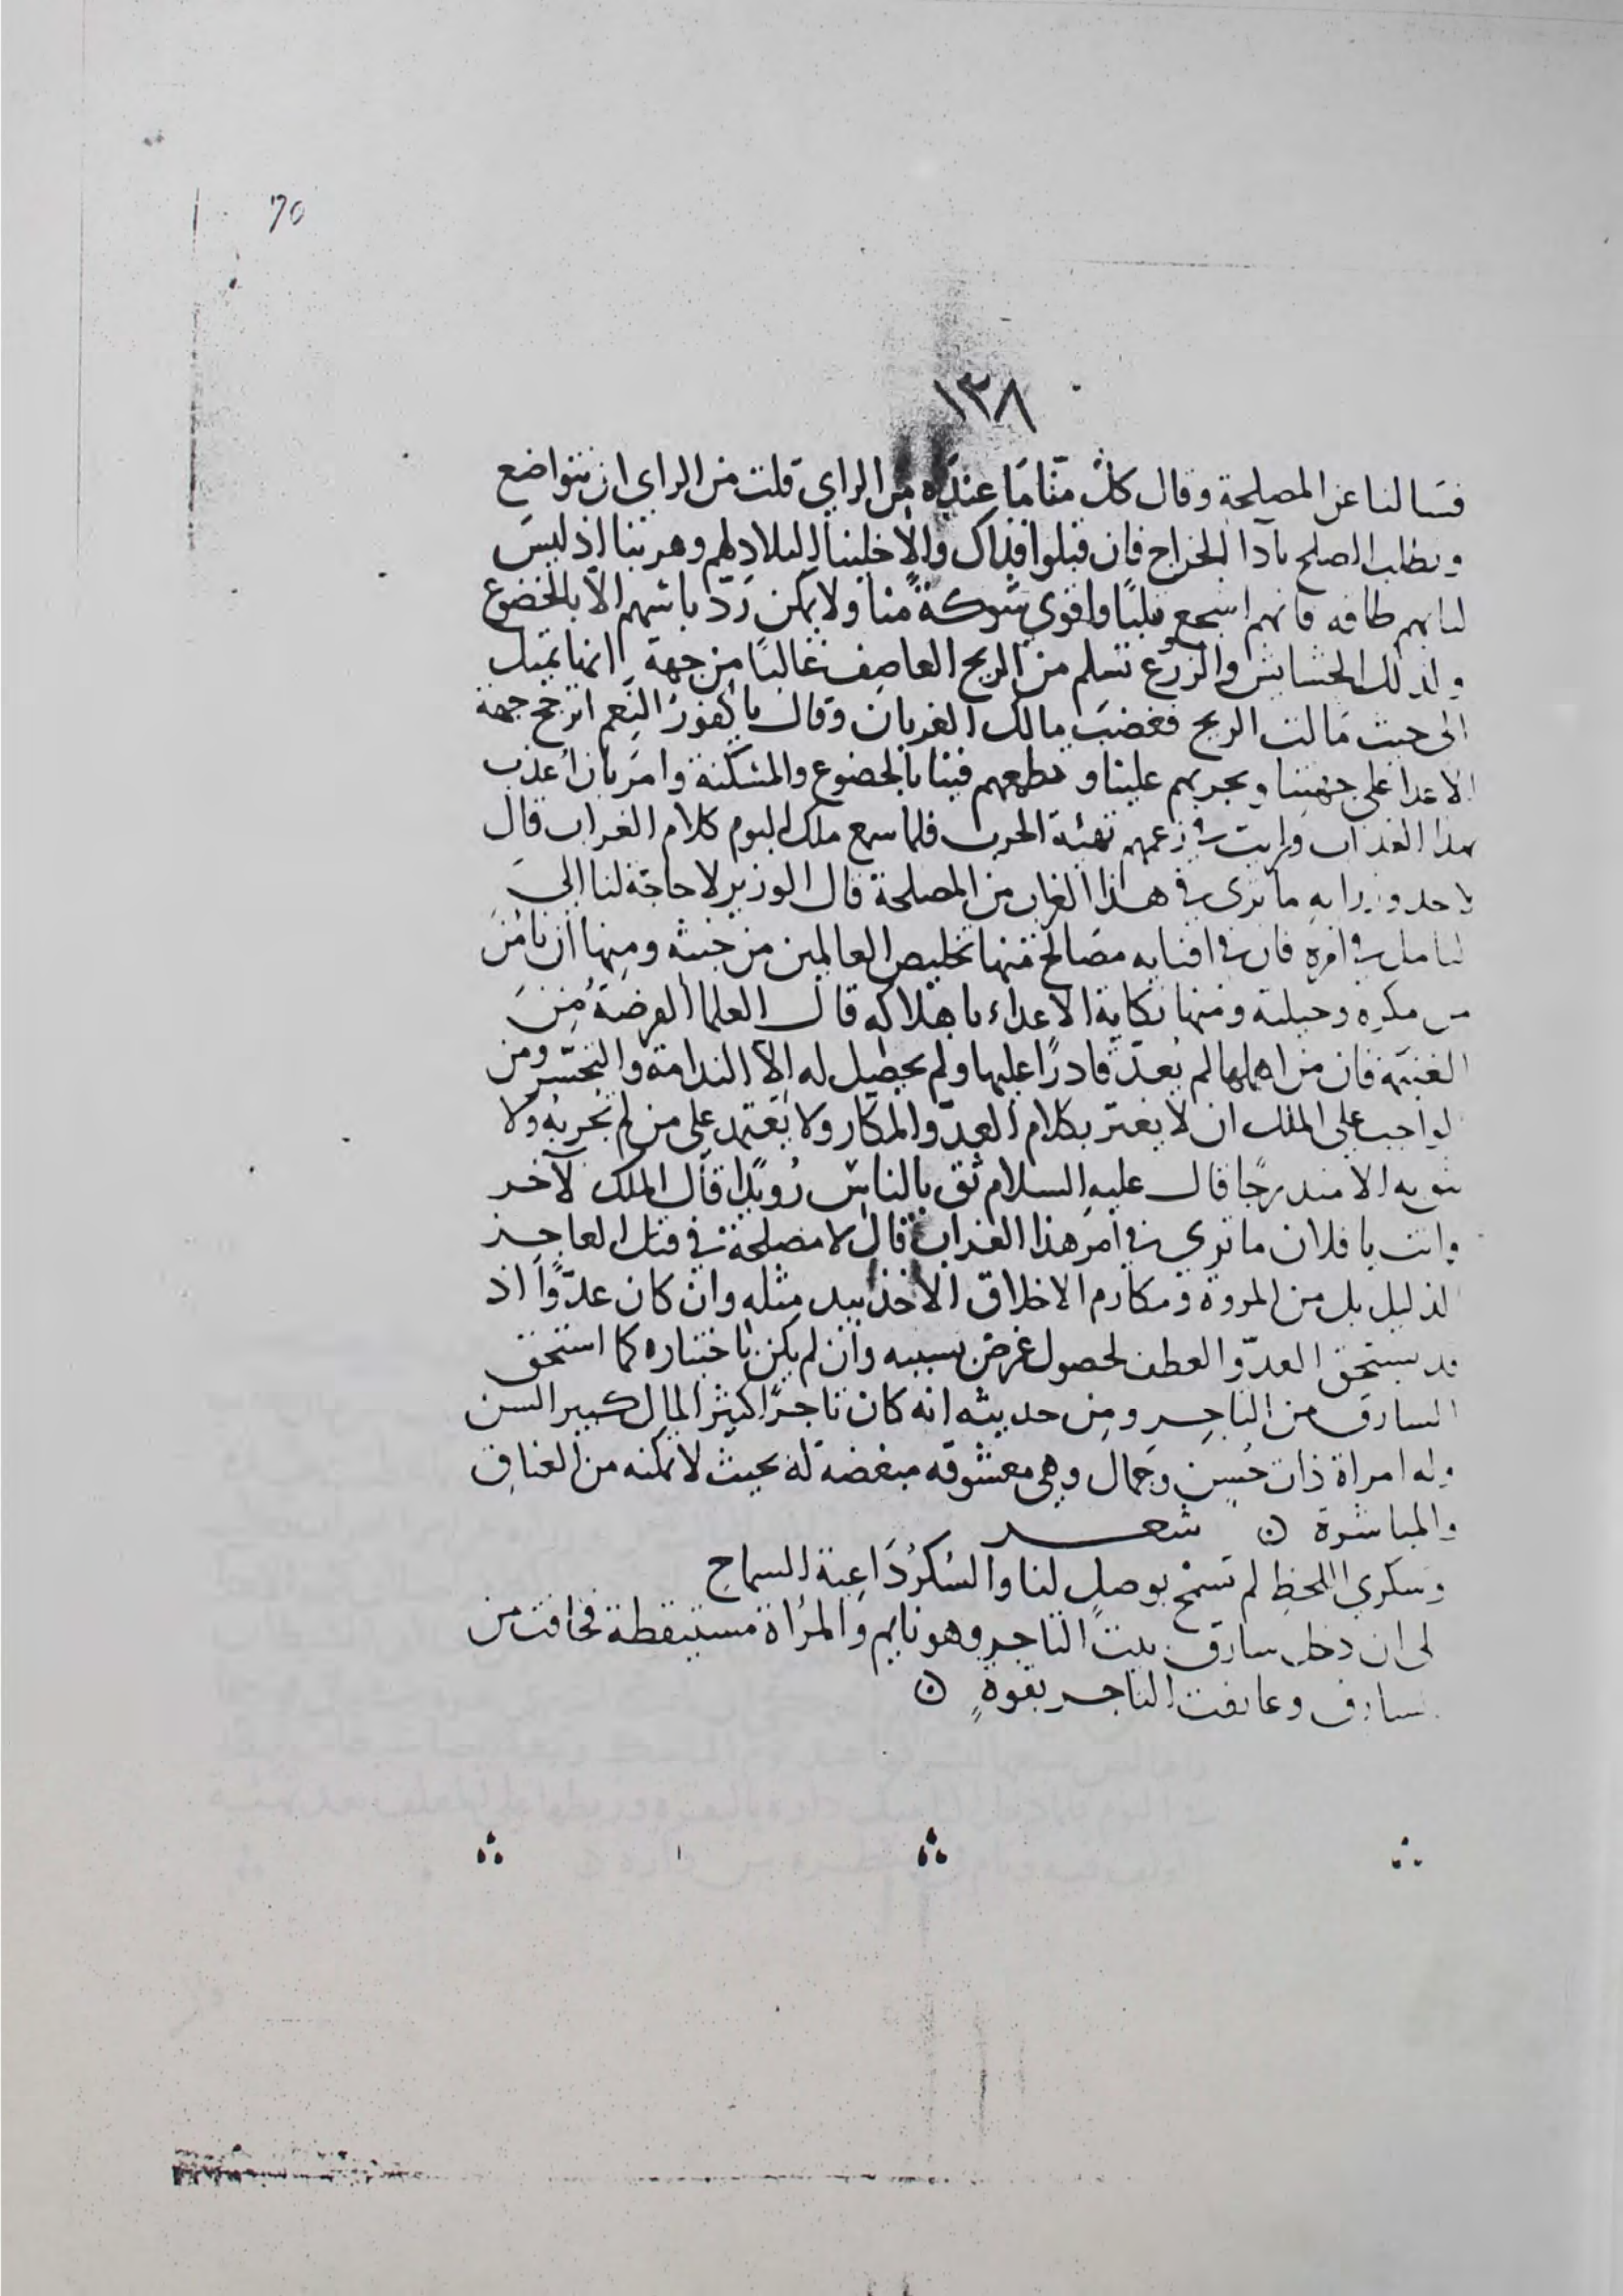 70
١٣٨
فسالنا عن المصلحة وقال كلٌّ منّا مَا عندَه من الراي قلت من الراي ان نتواضع
ونطلب الصلح بآدا الخراج فان قبلوا فذاك والّا خلينا البلاد لهم وهربنا اذ ليسَ
لنا بهم طاقه فانهم اشجع قلبًا واقوي شوكةً منا ولا يمكن رَدّ باسهم الّا بالخضوع
ولذلك الحشايش والزرع تسلم من الريح العاصف غالبًا من جهة انها تميل
الى حيث مَالت الريح فغضبَ مالك الغربان وقال يا كفورُ النِعم اترجح جهة
الاعدا على جهتنا وتجريهم علينا وتطمعهم فينا بالخضوع والمسكنة وامَر بان اُعذب
هذا العذاب ورايت في زعمهم تهيئة الحرب فلما سمع ملك البوم كلام الغراب قال
لاحد وزرايه ما ترى في هذا الغراب من المصلحة قال الوزير لا حاجة لنا الىَ
التامل في امره فان في افنايه مصَالح منها تخليص العالمين من خبثه ومنها ان نامنَ
من مكره وحيلته ومنها نكاية الاعداء باهلاكه قال العلما الفرصَةُ مِنَ
الغنيمَة فان من اهملها لم يُعدّ قادرًا عليها ولم يحصل له الّا الندامة والتحسّر ومن
الواجب على الملك ان لا يغتر بكلام العدّو المكّار ولا يَعتمد على من لم يجربه ولا
يثق به الا متدرجًا قال عليهِ السلام ثق بالناسِ رُويدًا قال الملك لآخر
وانت يا فلان ما تري في امر هذا الغراب قال لا مصلحة في قتل العاجز
الذليل بل من المروة ومكارم الاخلاق الاخذ بيد مثله وان كان عدّوًا اذ
قد يستحق العدّو العطف لحصول غرض بسببه وان لم يكن باختياره كما استحق
السارق من التاجر ومن حديثه انه كان تاجرًا كثير المال كبير السن
وله امراة ذات حُسن وجمال وهي معشوقه مبغضه له بحيث لا تمكنه من العناق
والمباشرة ۞ شعر
وسكري اللحظِ لم تسمْح بوصلٍ لنا والسُكرُ دَاعية السماحِ
الى ان دخل سارق بيت التاجر وهو نايم والمرُاة مستيقظة فخافت من
السارق وعانقت التاجر بقوةٍ ۞